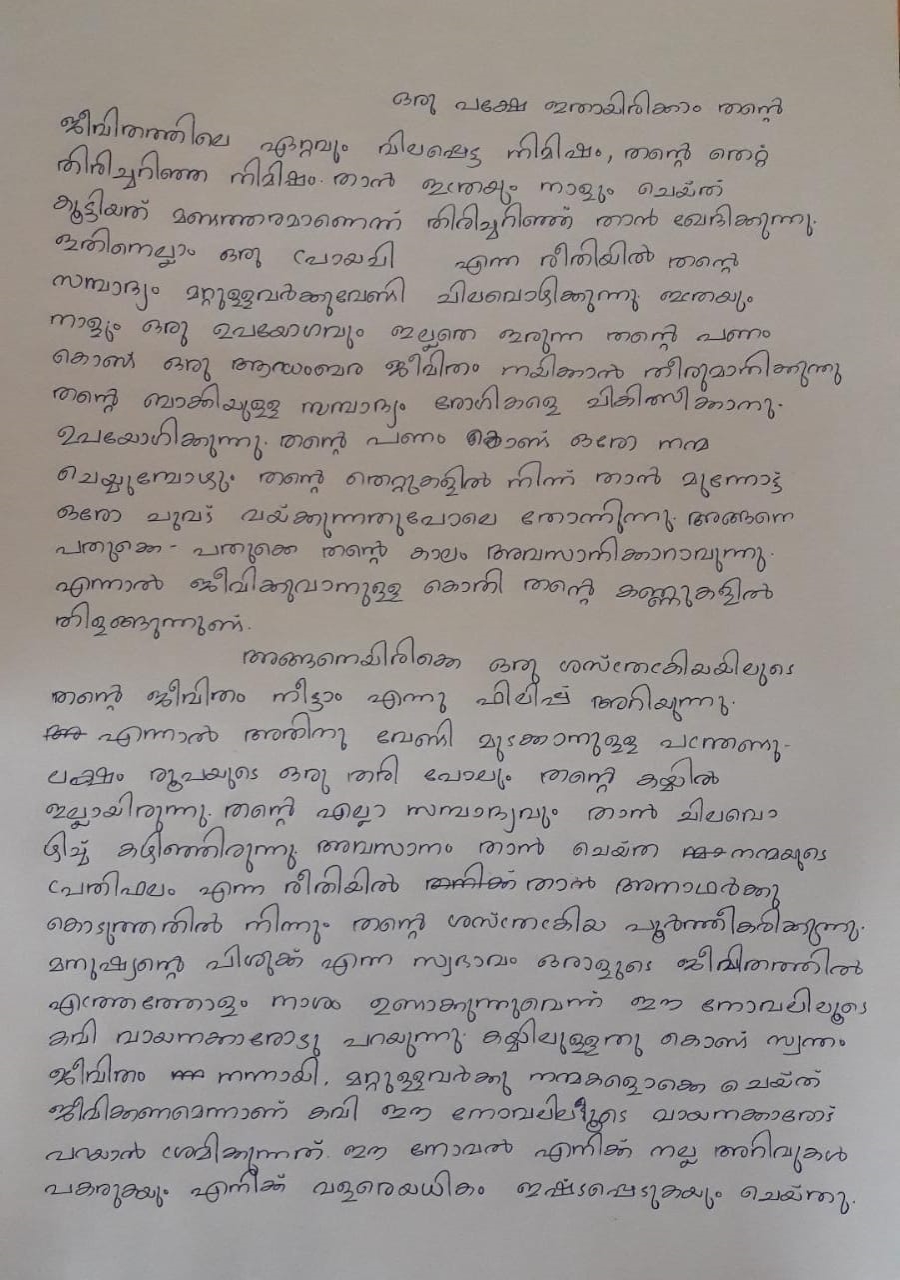 ഒരു പക്ഷേ ഇതായിരിക്കാം തന്റെ
ജീവിതത്തിലെ ഏറ്റവും വിലപ്പെട്ട നിമിഷം, തന്റെ തെറ്റ്
തിരിച്ചറിഞ്ഞ നിമിഷം. താൻ ഇത്രയും നാളും ചെയ്ത്
കൂട്ടിയത് മണ്ടത്തരമാണെന്ന് തിരിച്ചറിഞ്ഞ് താൻ ഖേദിക്കുന്നു.
ഇതിനെല്ലാം ഒരു പ്രായചി എന്ന രീതിയിൽ തന്റെ
സമ്പാദ്യം മറ്റുള്ളവർക്കുവേണ്ടി ചിലവൊഴിക്കുന്നു. ഇത്രയും
നാളും ഒരു ഉപയോഗവും ഇല്ലതെ ഇരുന്ന തന്റെ പണം
കൊണ്ട് ഒരു ആഢംബര ജീവിതം നയിക്കാൻ തീരുമാനിക്കുന്നു
തന്റെ ബാക്കിയുള്ള സമ്പാദ്യം രോഗികളെ ചികിത്സിക്കാനു-
ഉപയോഗിക്കുന്നു. തന്റെ പണം കൊണ്ട് ഒരോ നന്മ
ചെയ്യുമ്പോഴും തന്റെ തെറ്റുകളിൽ നിന്ന് താൻ മുന്നോട്ട്
ഒരോ ചുവട് വയ്ക്കുന്നതുപോലെ തോന്നിന്നു. അങ്ങനെ
പതുക്കെ - പതുക്കെ തന്റെ കാലം അവസാനിക്കാറാവുന്നു.
എന്നാൽ ജീവിക്കുവാനുള്ള കൊതി തന്റെ കണ്ണുകളിൽ
തിളങ്ങുന്നുണ്ട്.
അങ്ങനെയിരിക്കെ ഒരു ശസ്ത്രക്രിയയിലൂടെ
തന്റെ ജീവിതം നീട്ടാം എന്നു ഫിലിപ്പ് അറിയുന്നു.
എന്നാൽ അതിനു വേണ്ടി മുടക്കാനുള്ള പന്ത്രണ്ടു-
ലക്ഷം രൂപയുടെ ഒരു തരി പോലും തന്റെ കയ്യിൽ
ഇല്ലായിരുന്നു. തന്റെ എല്ലാ സമ്പാദ്യവും താൻ ചിലവൊ
ഴിച്ച് കഴിഞ്ഞിരുന്നു. അവസാനം താൻ ചെയ്ത നന്മയുടെ
പ്രതിഫലം എന്ന രീതിയിൽ താൻ അനാഥർക്കു
കൊടുത്തതിൽ നിന്നും തന്റെ ശസ്ത്രക്രിയ പൂർത്തീകരിക്കുന്നു.
മനുഷ്യന്റെ പിശുക്ക് എന്ന സ്വഭാവം ഒരാളുടെ ജീവിതത്തിൽ
എത്രത്തോളം നാശം ഉണ്ടാക്കുന്നുവെന്ന് ഈ നോവലിലൂടെ
കവി വായനക്കാരോടു പറയുന്നു. കയ്യിലുള്ളതു കൊണ്ട് സ്വന്തം
ജീവിതം നന്നായി, മറ്റുള്ളവർക്കു നന്മകളൊക്കെ ചെയ്ത്
ജീവിക്കണമെന്നാണ് കവി ഈ നോവലിലൂടെ വായനക്കാരോട്
പറയാൻ ശ്രമിക്കുന്നത്. ഈ നോവൽ എനിക്ക് നല്ല അറിവുകൾ
പകരുകയും എനിക്ക് വളരെയധികം ഇഷ്ടപ്പെടുകയും ചെയ്തു.